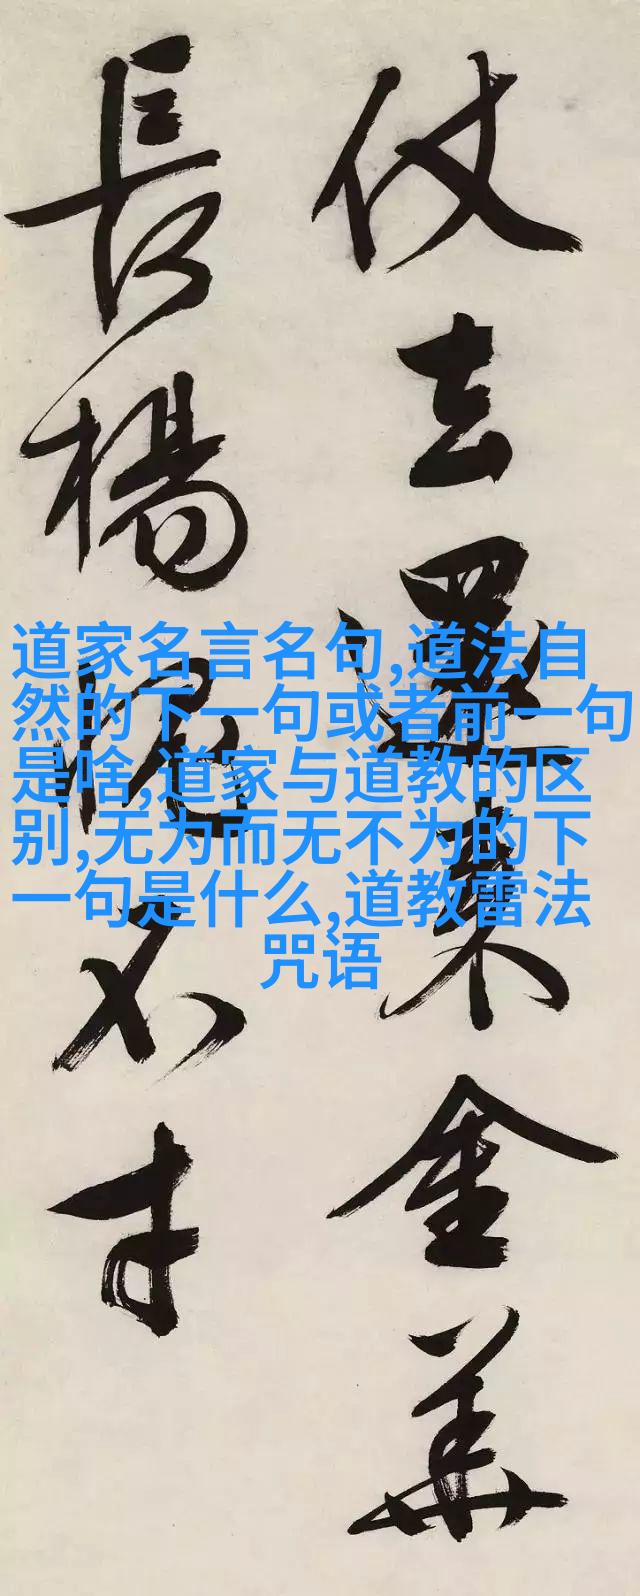 仗去還来金華
長楊愧不才
道家名言名句,道法自
然的下一句或者前一句
是啥,道家与道教的区
别,无为而无不为的下
一句是什么,道教雷法
咒语